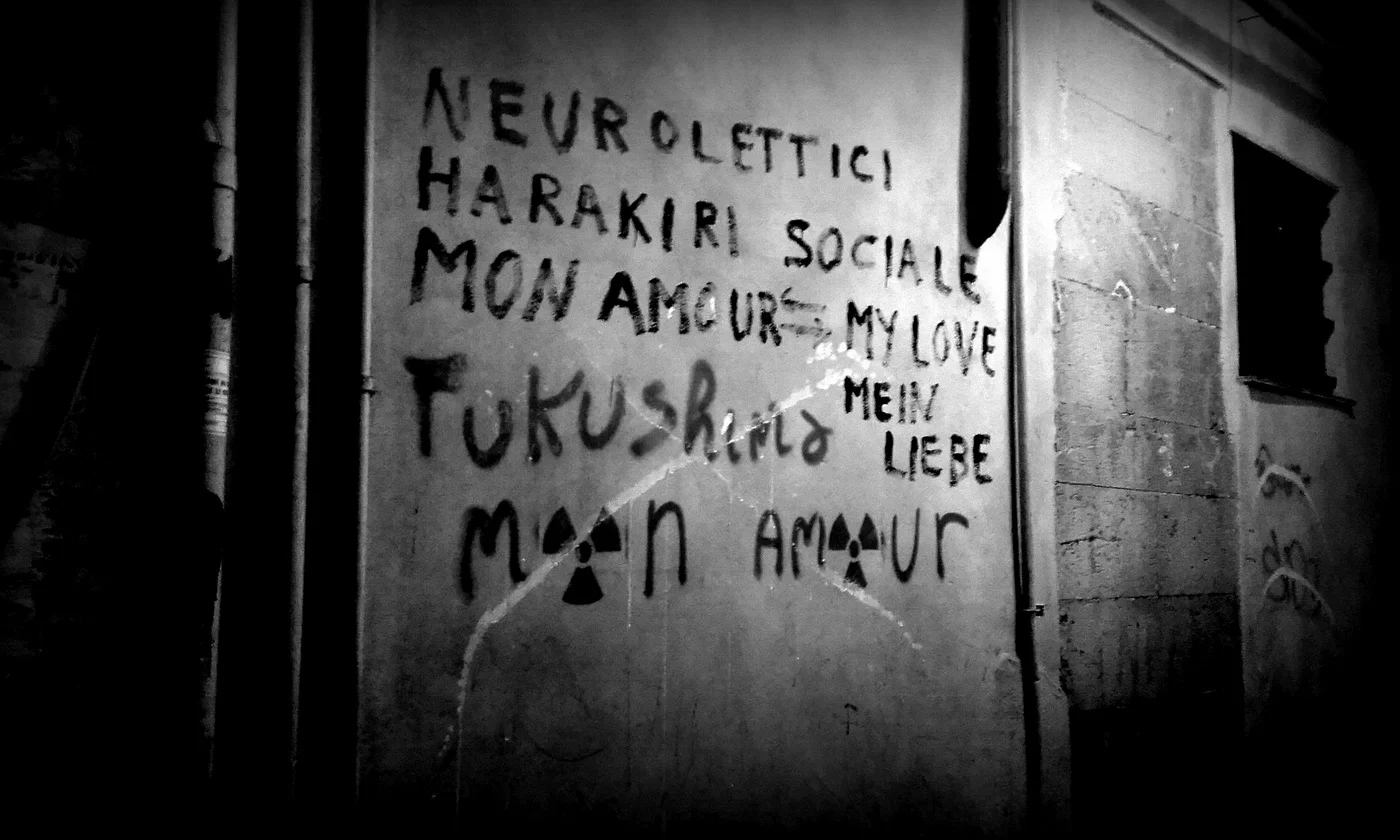 NEUROLETTICI
HARAKIRI SOCIALE
MON AMOUR ⇆ MY LOVE
MEIN
LIEBE
FUKUShima
m☢n AM☢ur